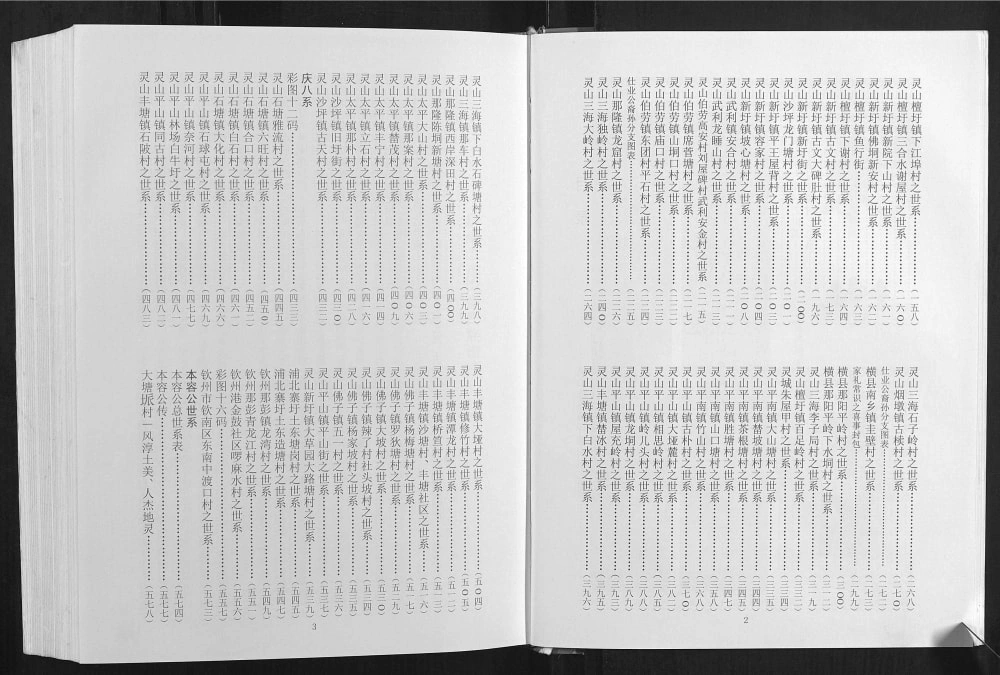 灵山檀圩镇下江埠村之世系……（一五八）
灵山檀圩镇三合水谢屋村之世系……（一六〇）
灵山新圩镇新院下山村之世系……（一六一）
灵山新圩镇佛垌新安村之世系……（一六二）
灵山檀圩镇鱼行街……（一六三）
灵山檀圩镇下谢村之世系……（一六四）
灵山新圩镇古文村之世系……（一七三）
灵山新圩镇古文大碑肚村之世系……（一九六）
灵山新圩镇新圩街之世系……（二〇〇）
灵山沙坪龙门塘村之世系……（二〇一）
灵山新圩镇平王屋背村之世系……（二〇三）
灵山新圩镇容家村之世系……（二〇四）
灵山新圩镇坡心塘村之世系……（二〇八）
灵山武利镇安合村之世系……
灵山武利龙睡山村之世系……
灵山伯劳高安村刘屋碑村武利安金村之世系（二一五）
灵山伯劳镇席营塘村之世系……（二一七）
灵山伯劳镇山垌口村之世系……（二二二）
灵山伯劳镇庙口村之世系……（二二三）
灵山伯劳镇东团村平石村之世系……（二二四）
仕业公裔孙分支图表……（二二五）
灵山那隆镇龙窟村之世系……（二二六）
灵山三海独岭村之世系……（二四〇）
灵山三海大岭村之世系……（二六四）
灵山三海石子岭村之世系……（二六八）
灵山烟墩镇古椟村之世系……（二七〇）
仕业公裔孙分支图表……（二七二）
横县南乡镇圭壁村之世系……（二七三）
家礼常识之喜事封包……（二九九）
横县那阳平岭村之世系……（三〇〇）
横县那阳平岭下水垌村之世系……
灵山三海李子局村之世系……（三一九）
灵山檀圩镇百足岭村之世系……
灵城朱屋甲村之世系……（三三四）
灵山平南镇大山塘村之世系……（三三五）
灵山平南镇替坡塘村之世系……
灵山平南镇茶根塘村之世系……
灵山平南镇胜塘村之世系……
灵山平南镇山口塘村之世系……（三五八）
灵山平南镇竹山村之世系……
灵山平南镇古朴村之世系……（三七〇）
灵山平山镇大垯麓村之世系……
灵山平山镇相思岭村之世系……
灵山平山镇岭儿头村之世系……
灵山平山镇龙垌村之世系……
灵山平山镇屋充岭村之世系……
灵山丰塘镇替冰村之世系……（三九五）
灵山三海镇下白水村之世系……（三九六）
2
灵山三海镇下白水石碑塘村之世系……（三九八）
灵山三海镇那车村之世系……（三九九）
灵山那隆镇西岸深田村之世系……（四〇〇）
灵山那隆陈垌新塘村之世系……（四〇一）
灵山太平大山村之世系……（四〇三）
灵山太平镇那案村之世系……（四〇六）
灵山太平镇替茂村之世系……（四〇九）
灵山太平镇丰宁村之世系……（四一四）
灵山太平镇立石村之世系……（四一六）
灵山太平镇那朴村之世系……（四一八）
灵山沙坪镇旧圩街之世系……（四二〇）
灵山沙坪镇古大村之世系……（四三二）
庆八系
彩图十二码……（四三三）
灵山石塘雅流村之世系……（四四五）
灵山石塘镇六旺村之世系……（四五〇）
灵山石塘镇合口村之世系……（四五二）
灵山石塘镇白石村之世系……（四六六）
灵山石塘镇大化村之世系……（四六六）
灵山平山镇石球屯村之世系……（四六九）
灵山平山镇奈河村之世系……（四七七）
灵山平山林场白牛圩之世系……（四八一）
灵山平山镇同古村之世系……（四八二）
灵山丰塘镇石陂村之世系……（四八三）
灵山丰塘镇大垯村之世系……（五〇四）
灵山丰塘镇修竹村之世系……（五〇五）
灵山丰塘镇潭龙村之世系……（五一一）
灵山丰塘镇桥笪村之世系……（五一二）
灵山丰塘镇沙塘村、丰塘社区之世系……（五一六）
灵山佛子镇杨梅塘村之世系……（五一七）
灵山佛子镇罗狄塘村之世系……（五一九）
灵山佛子镇大坡村之世系……（五三〇）
灵山佛子镇辣了村社头坡村之世系……（五三一）
灵山佛子镇杨家坡村之世系……（五三五）
灵山佛子镇五一村之世系……（五三六）
灵山平山镇平山街之世系……（五三八）
灵山新圩镇大草园大路塘村之世系……（五三九）
浦北寨圩土东塘岗村之世系……（五四五）
浦北寨圩土东造塘村之世系……（五四七）
钦州那彭镇龙湾村之世系……（五四九）
钦州那彭青龙江村之世系……（五五一）
钦州港金鼓社区啰麻水村之世系……（五五六）
彩图十六码……（五五七）
钦州市钦南区东南中渡口村之世系……（五七三）
本容公世系
本容公总世系表……（五七四）
本容公传……（五七七）
大塘垯村－风淳土美、人杰地灵……（五七八）
3